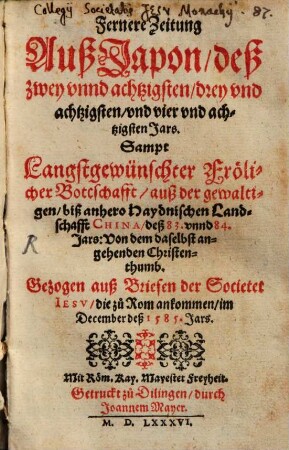 Collegij Societatis IESV Monachij. 87.
Fernere Zeitung
Auß Japon/ deß
zwey vnnd achtzigsten/ drey vnd
achtzigsten/ vnd vier vnd ach-
tzigsten Jars.
Sampt
Langstgewünschter Fröli-
cher Bottschafft/ auß der gewalti-
gen/ biß anhero Haydnischen Land-
schafft CHINA/ deß 83. vnnd 84.
Jars: Von dem daselbst an-
gehenden Christen-
thumb.
Gezogen auß Briefen der Societet
IESV/ die zů Rom ankommen/ im
December deß 1585. Jars.
Mit Röm. Kay. Mayester Freyheit.
Getruckt zů Dilingen/ durch
Joannem Mayer.
M. D. LXXXVI.